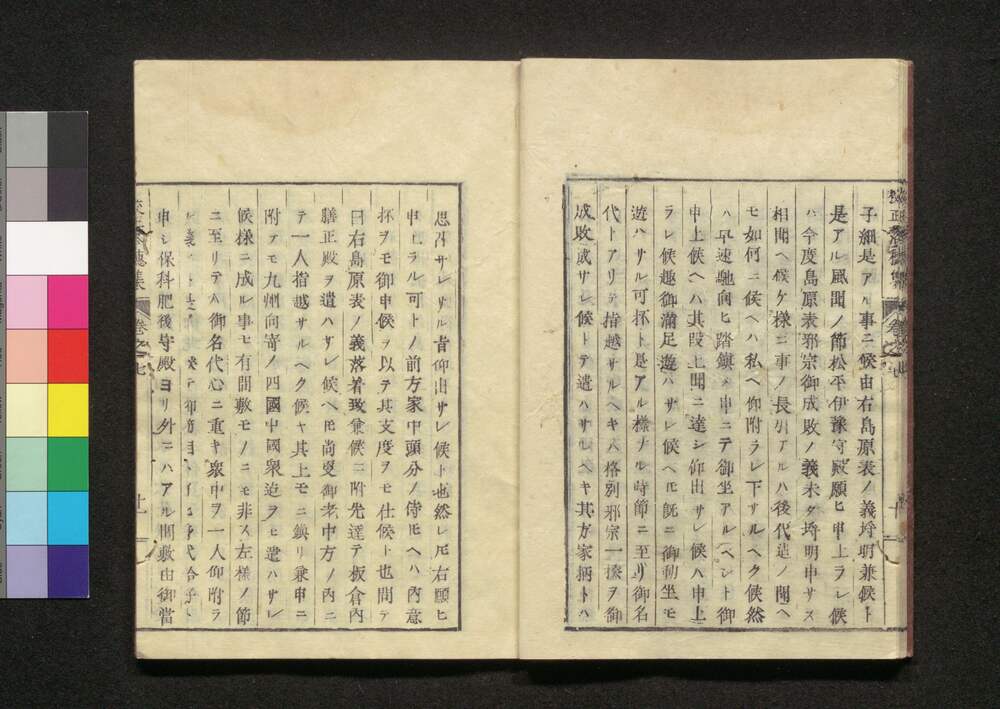 子細是アル事ニ候由右島原表ノ義埒明兼候ト
是アル風聞ノ節松平伊豫守殿願ヒ申上ラレ候
ハ今度島原表邪宗御成敗ノ義未タ埒明申サス
相聞ヘ候ケ様ニ事ノ長引アルハ後代迄ノ聞ヘ
モ如何ニ候ヘハ私ヘ仰附ラレ下サルヘク候然
ハ早速馳向ヒ踏鎮メ申ニテ御坐アルヘシト御
申上候ヘハ其段上聞ニ達シ仰出サレ候ハ申上
ラレ候趣御満足遊ハサレ候ヘ𪜈既ニ御動坐モ
遊ハサル可抔ト是アル様ナル時節ニ至リ御名
代トアリテ指越サルヘキハ格別邪宗一揆ヲ御
成敗成サレ候トテ遣ハサルヘキ其方家柄トハ
思召サレサル旨仰出サレ候ト也然レ𪜈右願ヒ
申上ラル可トノ前方家中頭分ノ侍モヘハ内意
抔ヲモ御申候ヲ以テ其支度ヲモ仕候ト也間テ
曰右島原表ノ義落着致兼候ニ附先達テ板倉内
膳正殿ヲ遣ハサレ候ヘ𪜈尚更御老中方ノ内ニ
テ一人指越サルヘク候ヤ其上モニ鎮リ兼申ニ
附アモ九州向寄ノ四國中國衆迄ヲヒ遣ハサレ
候様ニ成ル事モ有間敷モノニモ非ス左様ノ節
ニ至リテハ御名代心ニ重キ衆中ヲ一人仰附ラ
申シ保科肥後守殿ヨリ外ニハアル間敷由御當
集
卷之七
十
十一